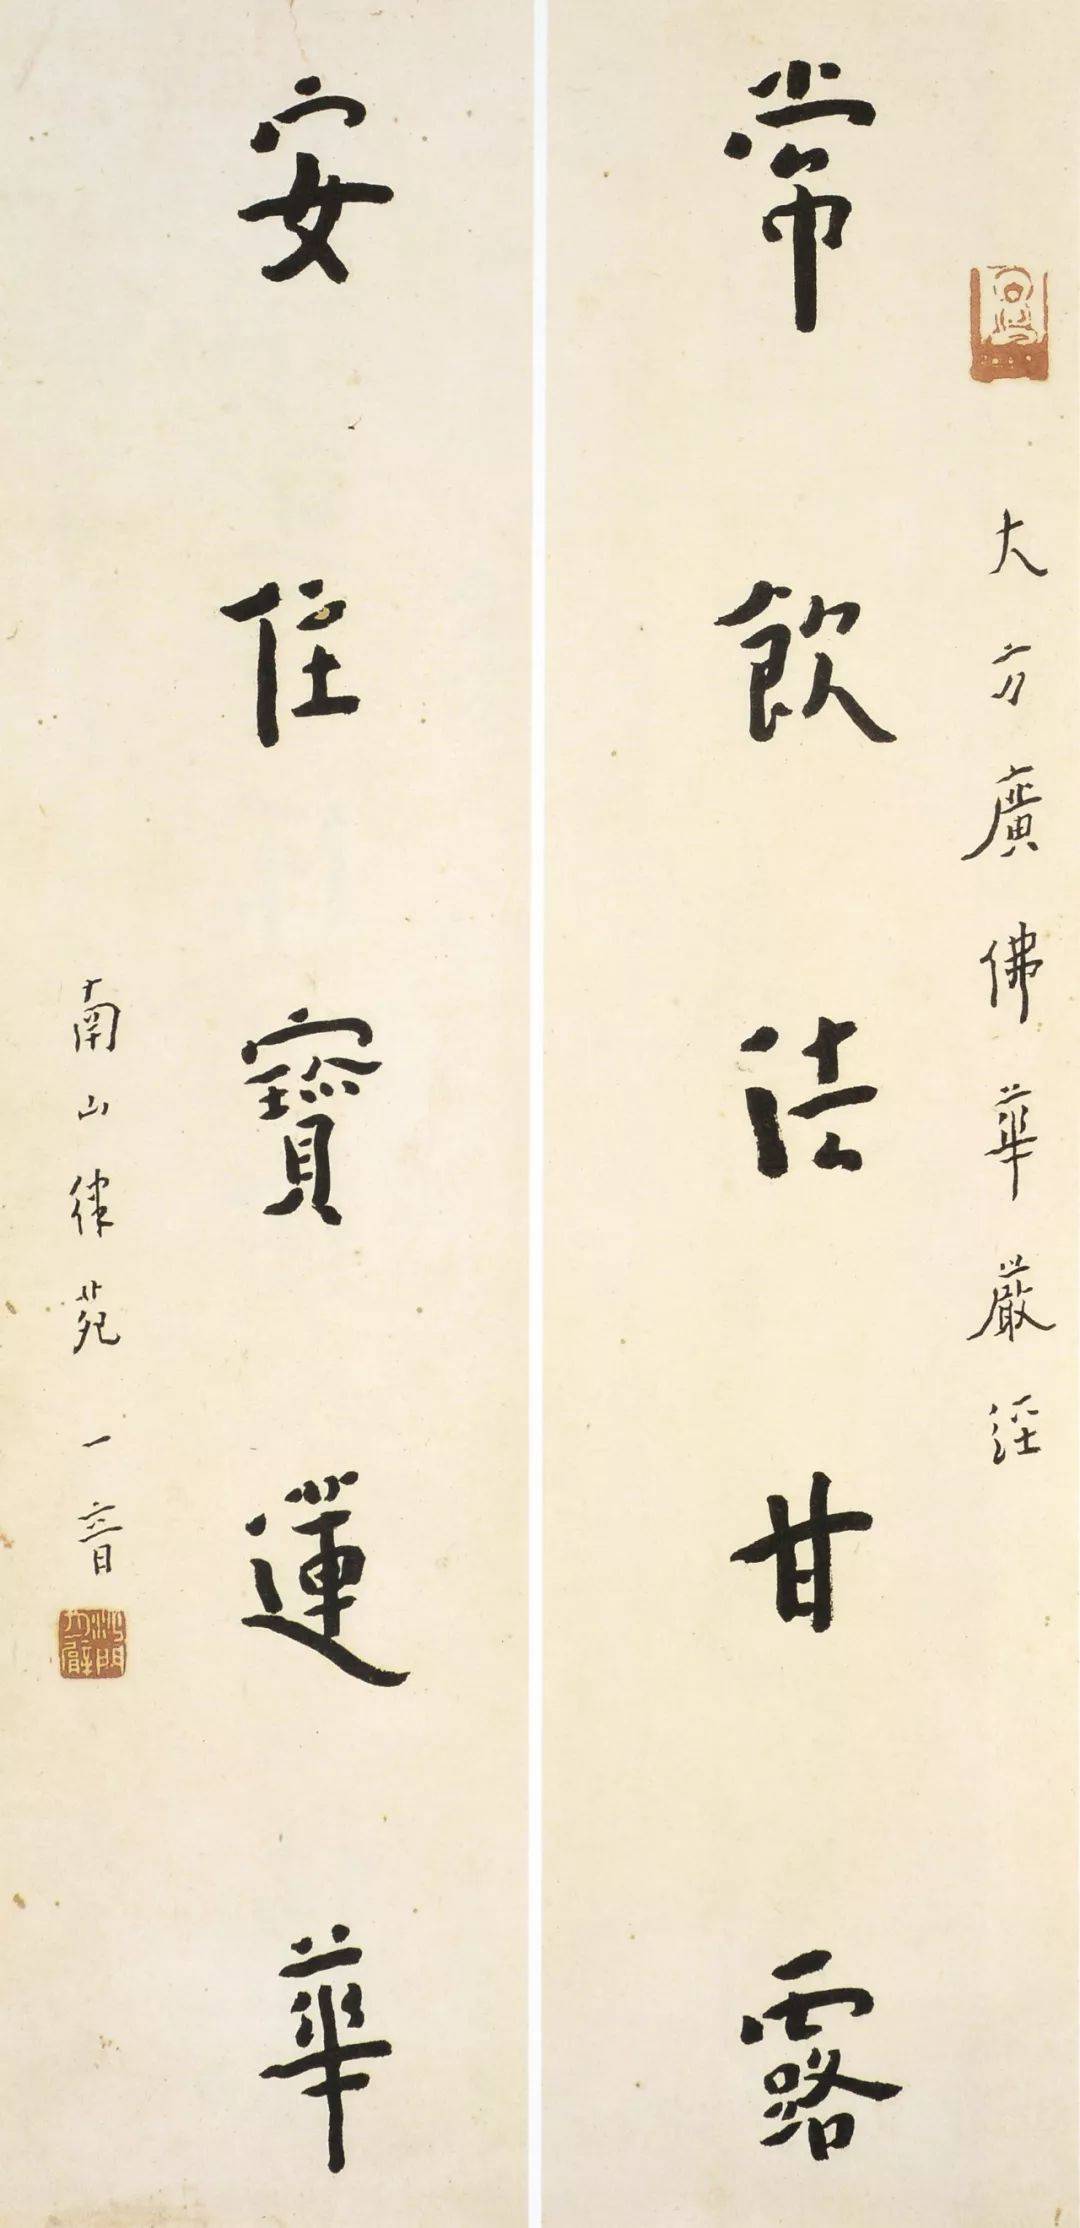 大方廣佛華嚴經
常飲法甘露
安住寶蓮華
南山律苑 一音